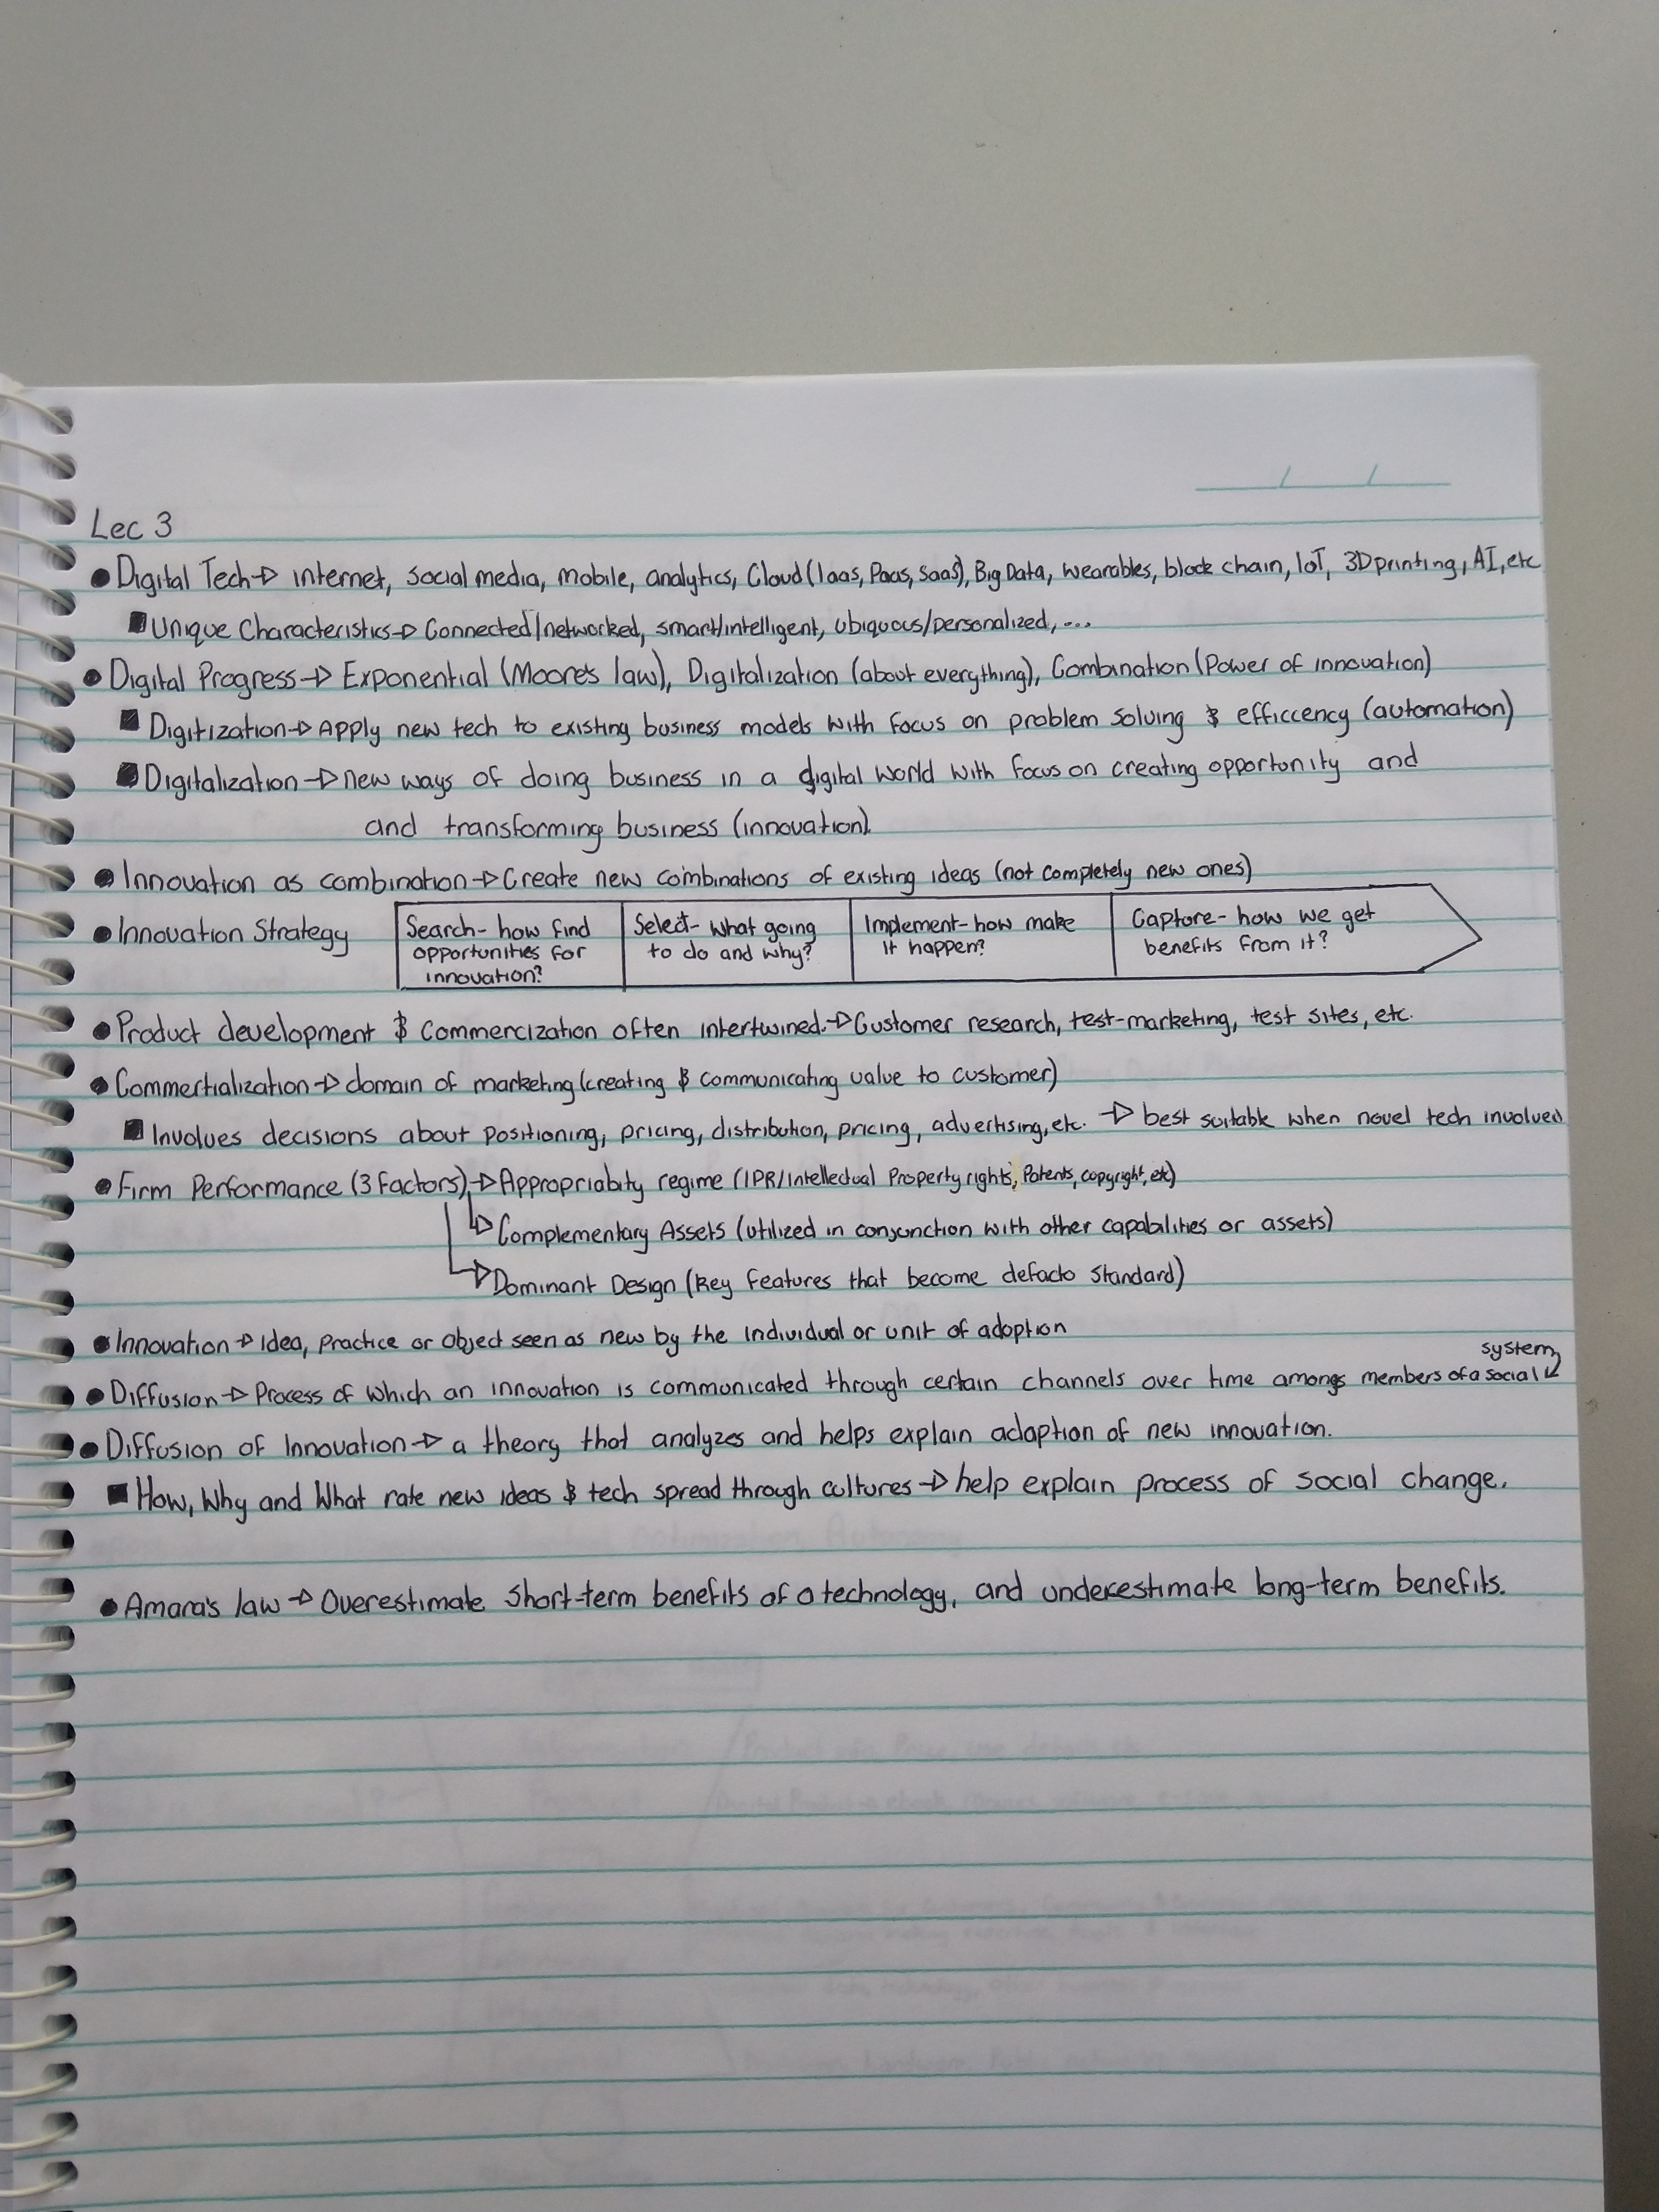 Lec 3
● Digital Tech → internet, social media, mobile, analytics, Cloud (Iaas, Paas, SaaS), Big Data, wearables, block chain, IoT, 3D printing, AI, etc
■ Unique Characteristics → Connected/networked, smart/intelligent, ubiquous/personalized, ...
● Digital Progress → Exponential (Moore's law), Digitalization (about everything), Combination (Power of innovation)
■ Digitization → Apply new tech to existing business models with focus on problem solving & efficcency (automation)
■ Digitalization → new ways of doing business in a digital world with focus on creating opportunity and
and transforming business (innovation).
● Innovation as combination → Create new combinations of existing ideas (not completely new ones)
● Innovation Strategy
Search - how find
opportunities for
innovation?
Select - what going
to do and why?
Implement - how make
it happen?
Capture - how we get
benefits from it?
● Product development & Commercization often intertwined. → Customer research, test-marketing, test sites, etc.
● Commertialization → domain of marketing (creating & communicating value to customer)
■ Involves decisions about positioning, pricing, distribution, pricing, advertising, etc. → best suitable when novel tech involved
● Firm Performance (3 Factors) → Appropriability regime (IPR/intellectual Property rights, Patents, copyright, etc)
→ Complementary Assets (utilized in conjunction with other capabilities or assets)
→ Dominant Design (key features that become defacto standard)
● Innovation → Idea, practice or object seen as new by the individual or unit of adoption
● Diffusion → Process of which an innovation is communicated through certain channels over time amongs members of a social
system
● Diffusion of Innovation → a theory that analyzes and helps explain adaption of new innovation.
■ How, Why and What rate new ideas & tech spread through cultures → help explain process of social change.
● Amara's law → Overestimate short-term benefits of a technology, and underestimate long-term benefits.